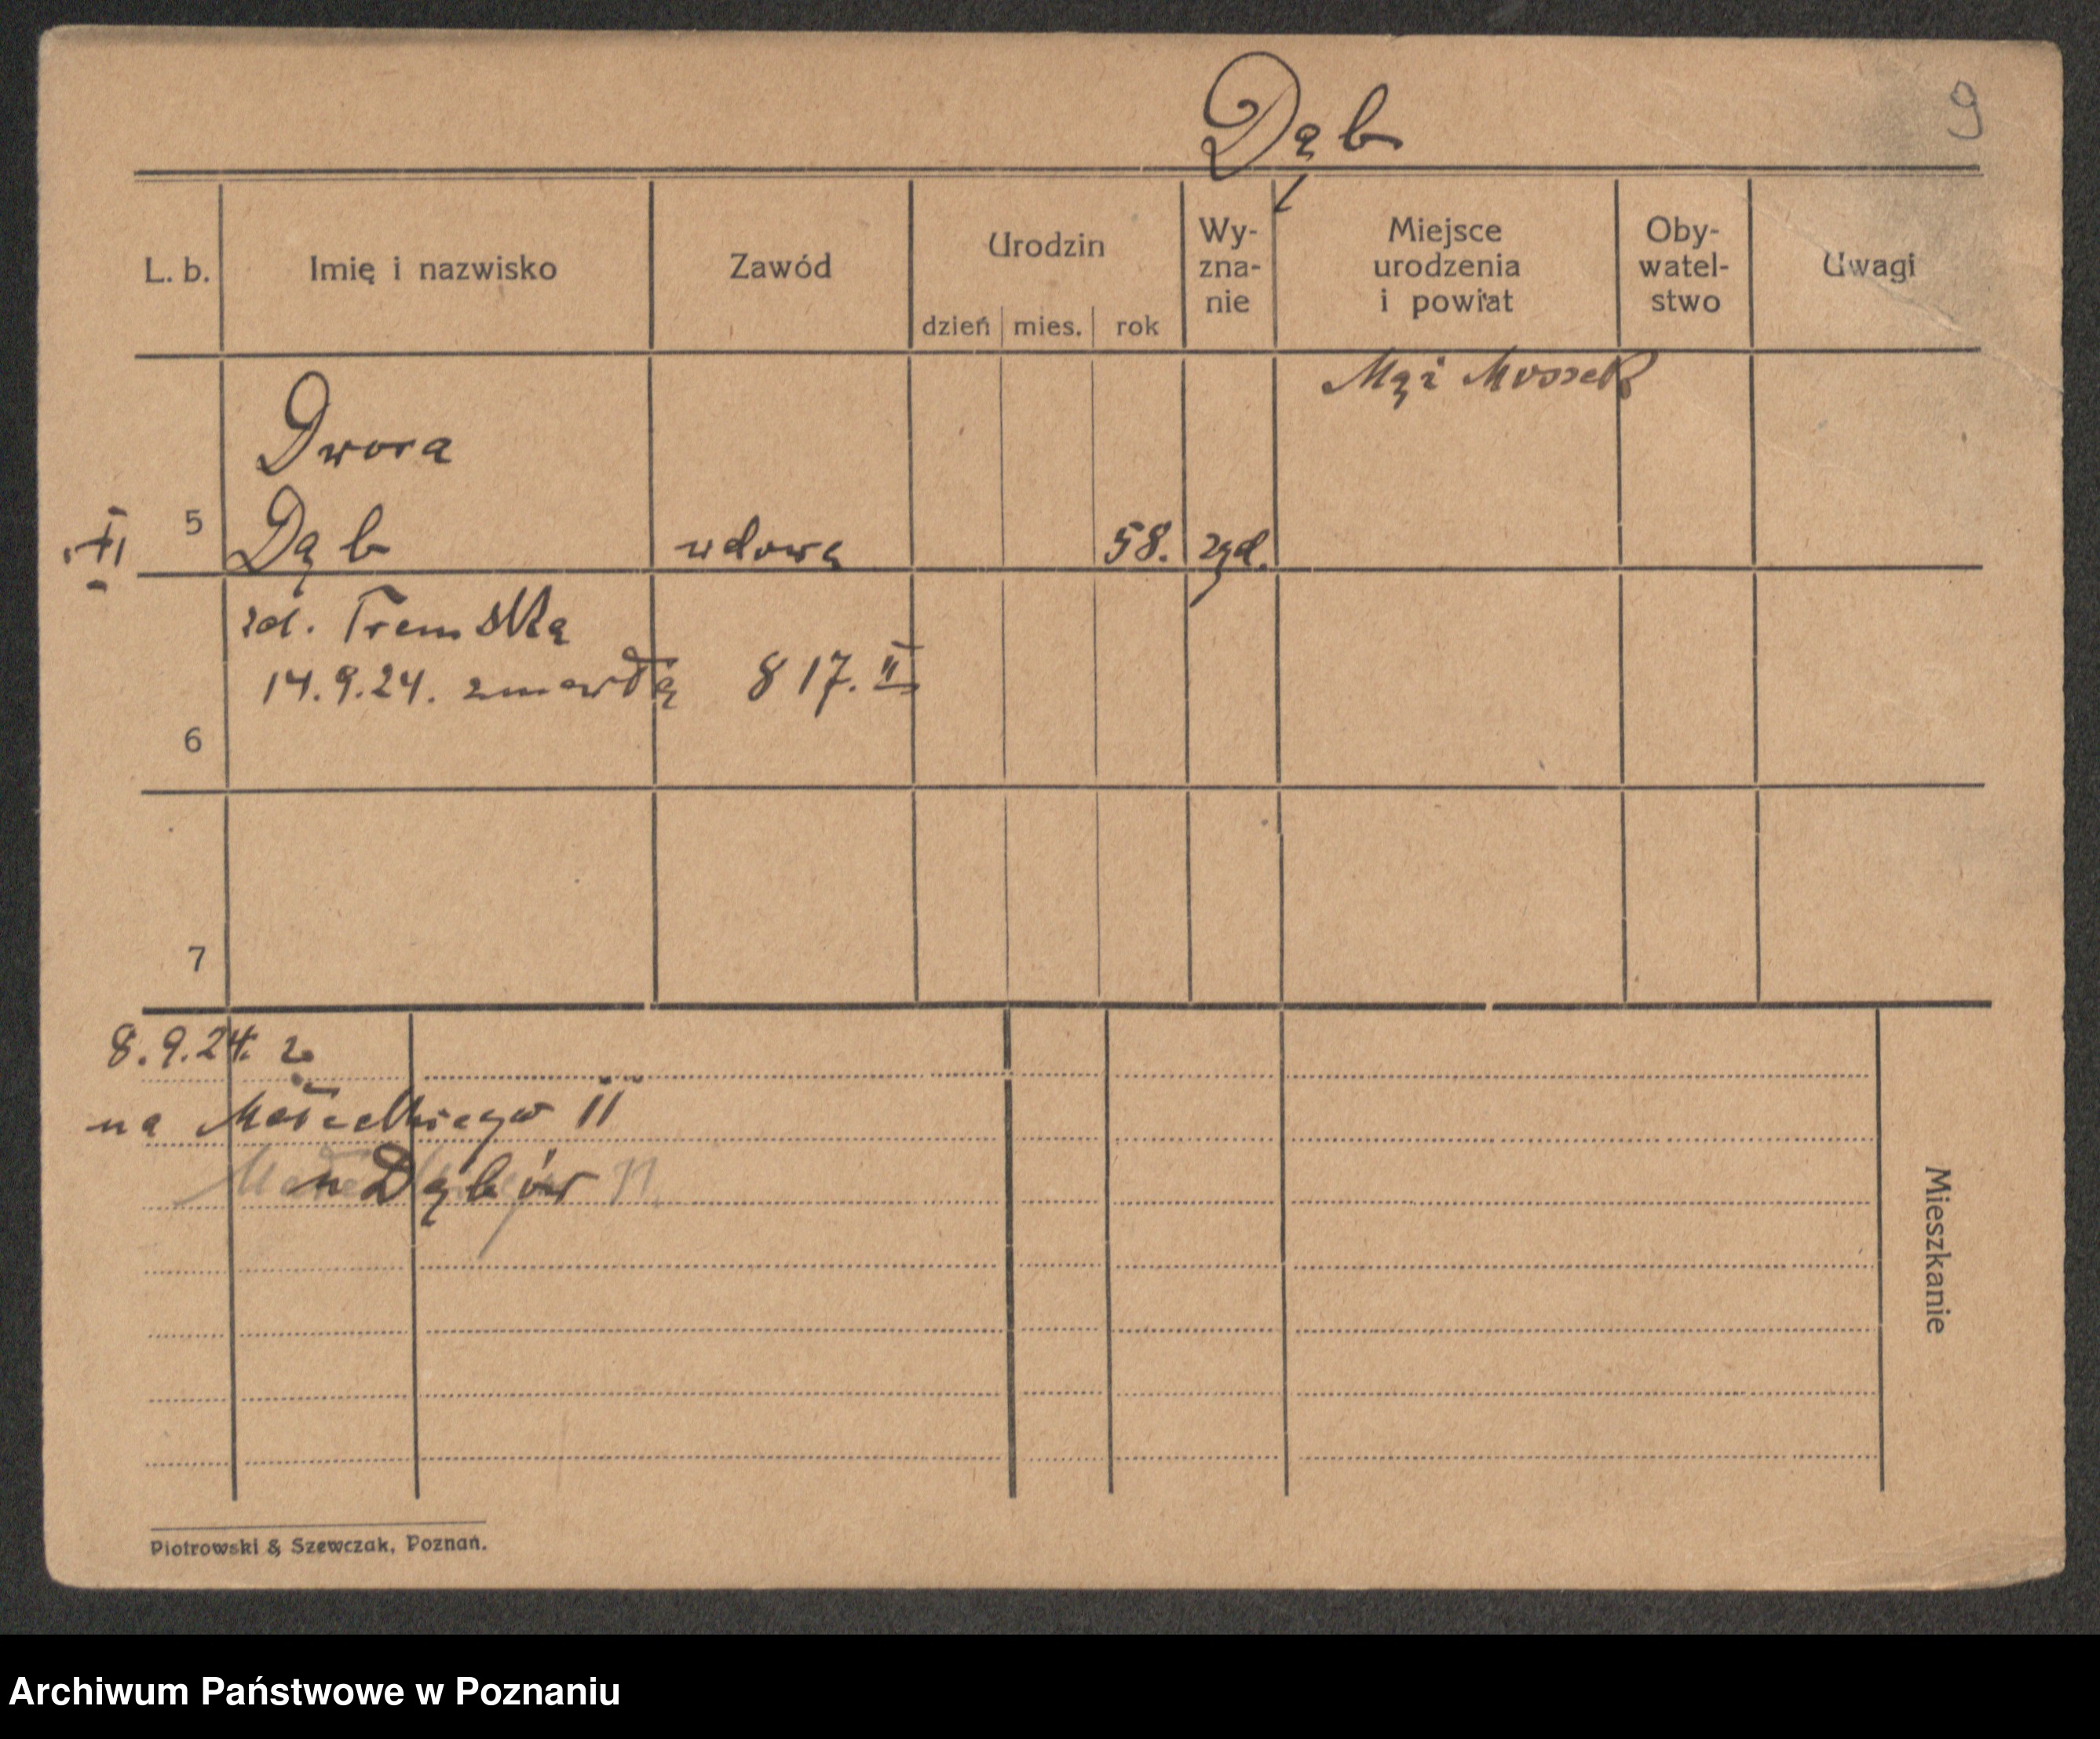 Dąb
9
L. b.
Imię i nazwisko
Zawód
Urodzin
dzień mies. rok
Wy-
zna-
nie
Miejsce
urodzenia
i powiat
Oby-
watel-
stwo
Uwagi
Mąż Mossek
Dwora
5 Dąb wdowa 58. żyd.
zd.
14.9.24. zmarła 817. II
6
7
8.9.24. z
na 11
u Dąbów 11
Mieszkanie
Piotrowski & Szewczak, Poznań.
Archiwum Państwowe w Poznaniu